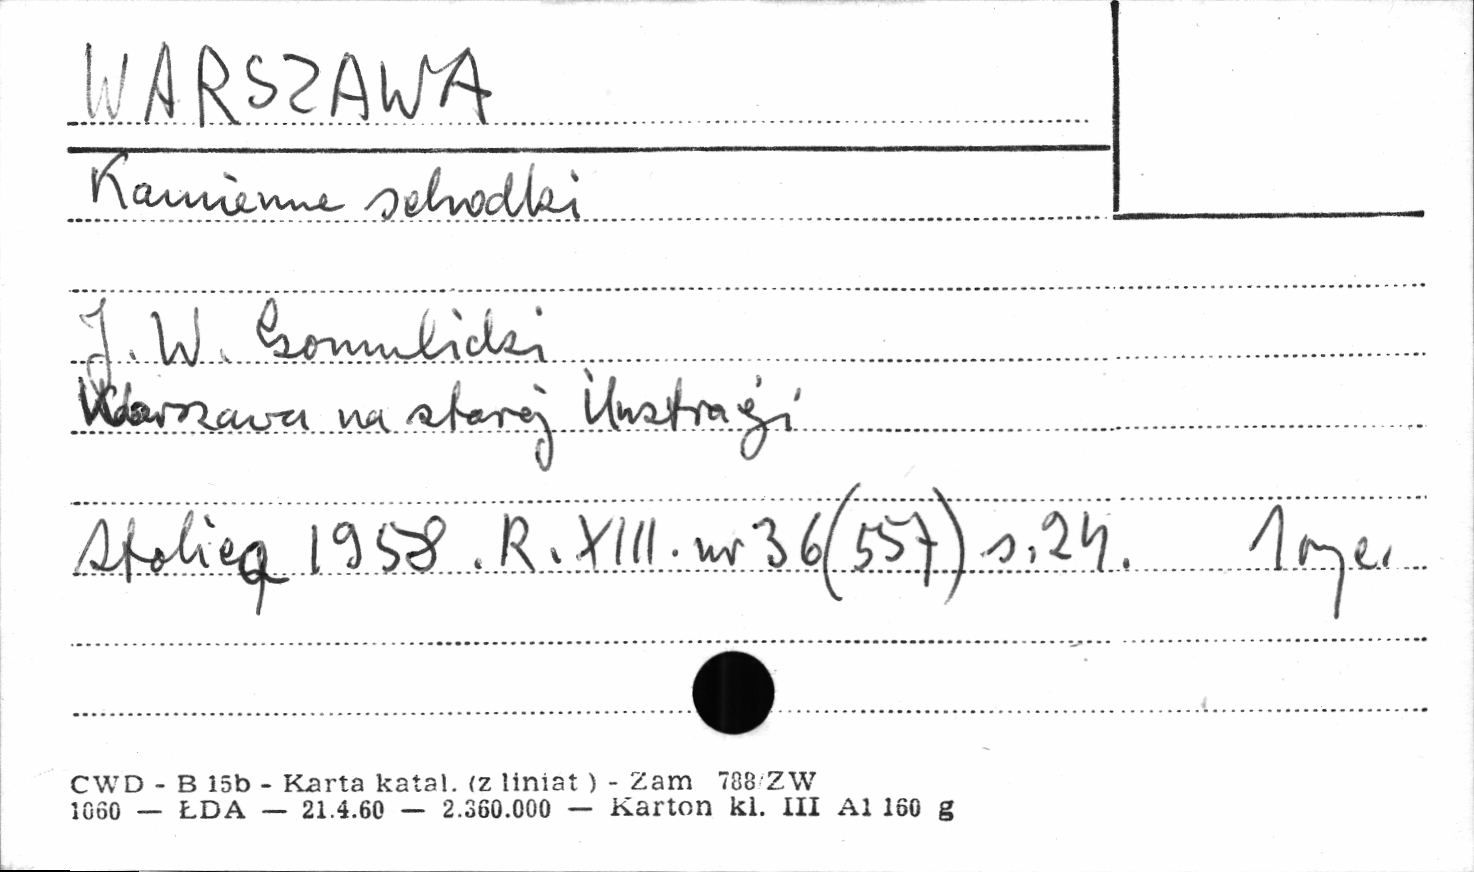 WARSZAWA
Kamienne schodki
J. W. Gomulicki
Warszawa na starej ilustracji
Stolica 1958. R. XIII. nr 36 (557) s. 24. 1 ryc.
CWD - B 15b - Karta katal. (z liniat ) - Zam 788/ZW
1060 — ŁDA — 21.4.60 — 2.360.000 — Karton kl. III A1 160 g